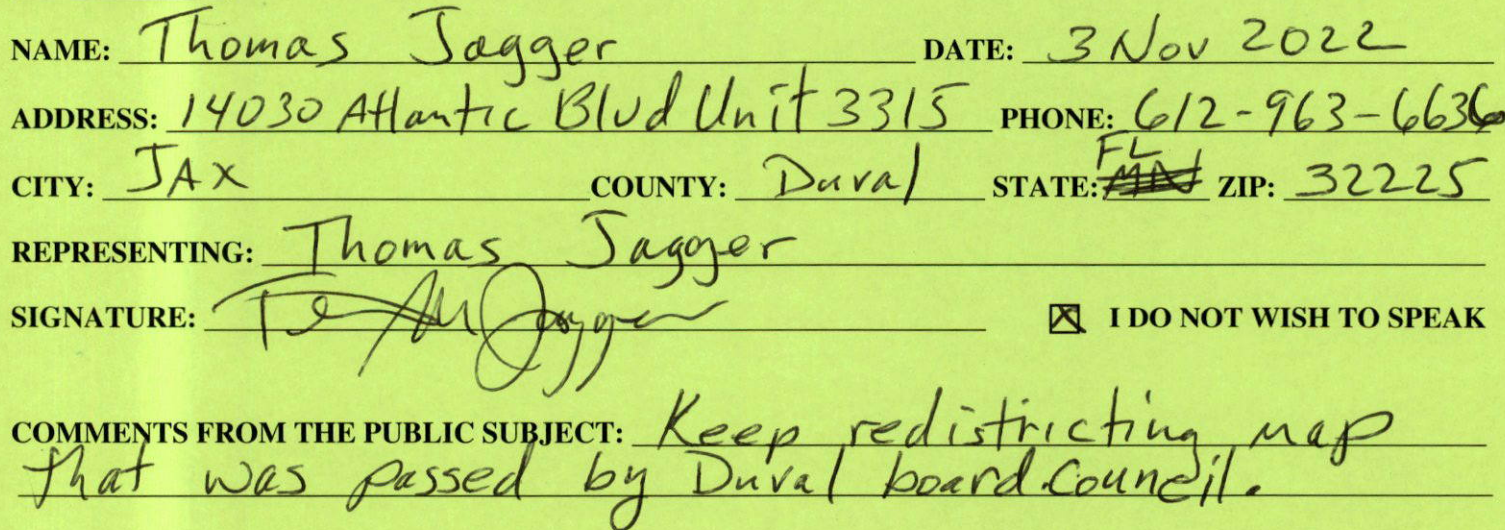 NAME: Thomas Jagger DATE: 3 Nov 2022
ADDRESS: 14030 Atlantic Blvd Unit 3315 PHONE: 612-963-6636
CITY: JAX COUNTY: Duval STATE: FL MN ZIP: 32225
REPRESENTING: Thomas Jagger
SIGNATURE: ☒ I DO NOT WISH TO SPEAK
COMMENTS FROM THE PUBLIC SUBJECT: Keep redistricting map
that was passed by Duval board.Council.